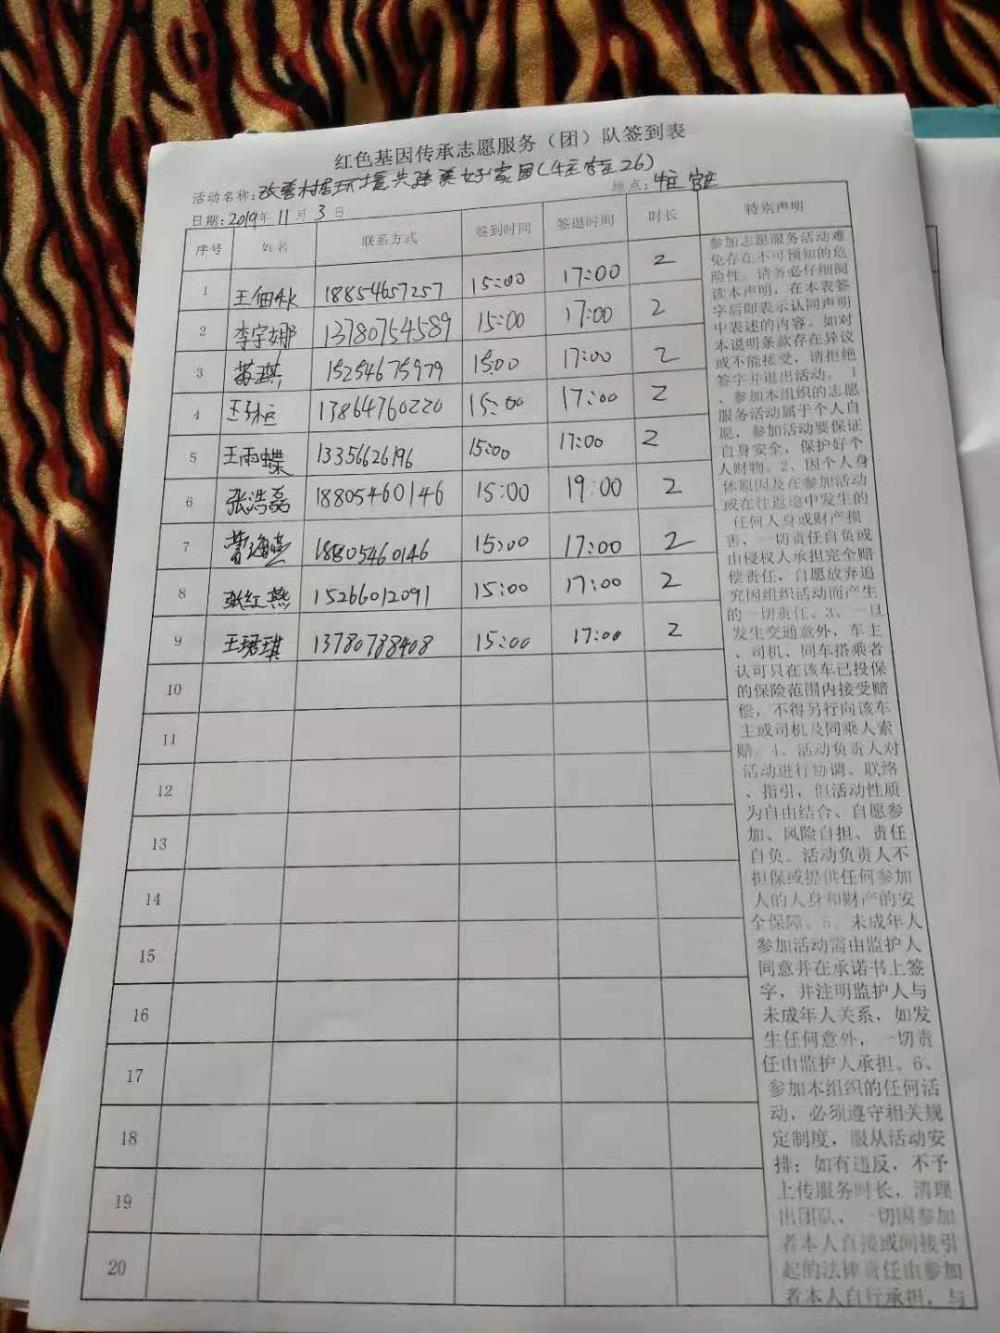 红色基因传承志愿服务（团）队签到表
活动名称：改善村居环境共建美好家园
日期：2019年11月3日 地点：
序号 姓名 联系方式 签到时间 签退时间 时长 特别声明
1 王佃秋 18854657257 15:00 17:00 2
2 李宇娜 13780754589 15:00 17:00 2
3 15254675979 15:00 17:00 2
4 13864760220 15:00 17:00 2
5 王雨蝶 13356626196 15:00 17:00 2
6 张浩磊 18805460146 15:00 19:00 2
7 18805460146 15:00 17:00 2
8 张红燕 15266012091 15:00 17:00 2
9 王珺琪 13780788408 15:00 17:00 2
10
11
12
13
14
15
16
17
18
19
20
参加志愿服务活动难
免存在不可预知的危
险性。请务必仔细阅
读本声明，在本表签
字后即表示认同声明
中表述的内容。如对
本说明条款存在异议
或不能接受，请拒绝
签字并退出活动。 1
、参加本组织的志愿
服务活动属于个人自
愿，参加活动要保证
自身安全，保护好个
人财物。2、因个人身
体原因及在参加活动
或在往返途中发生的
任何人身或财产损
害，一切责任自负或
由侵权人承担完全赔
偿责任，自愿放弃追
究因组织活动而产生
的一切责任。3、一旦
发生交通意外，车主
、司机、同车搭乘者
认可只在该车已投保
的保险范围内接受赔
偿，不得另行向该车
主或司机及同乘人索
赔。4、活动负责人对
活动进行协调、联络
、指引，但活动性质
为自由结合、自愿参
加、风险自担、责任
自负。活动负责人不
担保或提供任何参加
人的人身和财产的安
全保障。5、未成年人
参加活动需由监护人
同意并在承诺书上签
字，并注明监护人与
未成年人关系，如发
生任何意外，一切责
任由监护人承担。6、
参加本组织的任何活
动，必须遵守相关规
定制度，服从活动安
排；如有违反，不予
上传服务时长，清理
出团队，一切因参加
者本人直接或间接引
起的法律责任由参加
者本人自行承担，与